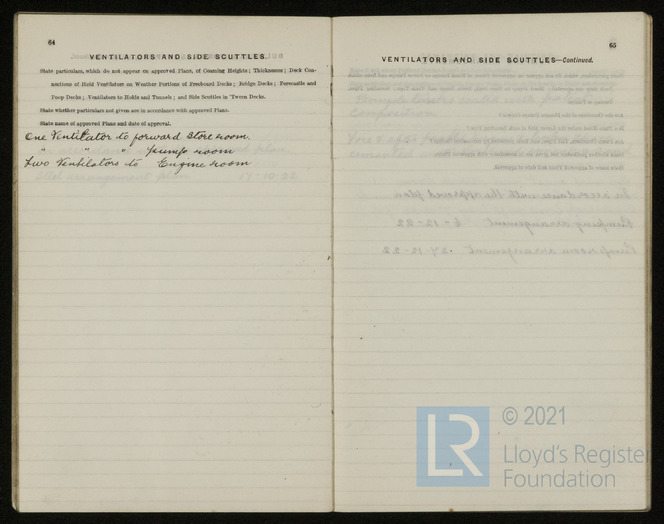 64
VENTILATORS AND SIDE SCUTTLES.
State particulars, which do not appear on approved Plans, of Coaming Heights; Thicknesses; Deck Con-
nections of Hold Ventilators on Weather Portions of Freeboard Decks; Bridge Decks; Forecastle and
Poop Decks; Ventilators to Holds and Tunnels; and Side Scuttles in 'Tween Decks.
State whether particulars not given are in accordance with approved Plans.
State name of approved Plans and date of approval.
One Ventilator to forward Store room.
" " " pump room
Two Ventilators to Engine room
65
VENTILATORS AND SIDE SCUTTLES—Continued.
In accordance with the approved plan
Pumping arrangement 6-12-22
Pump room arrangement 27-12-22
LR
© 2021
Lloyd's Register
Foundation